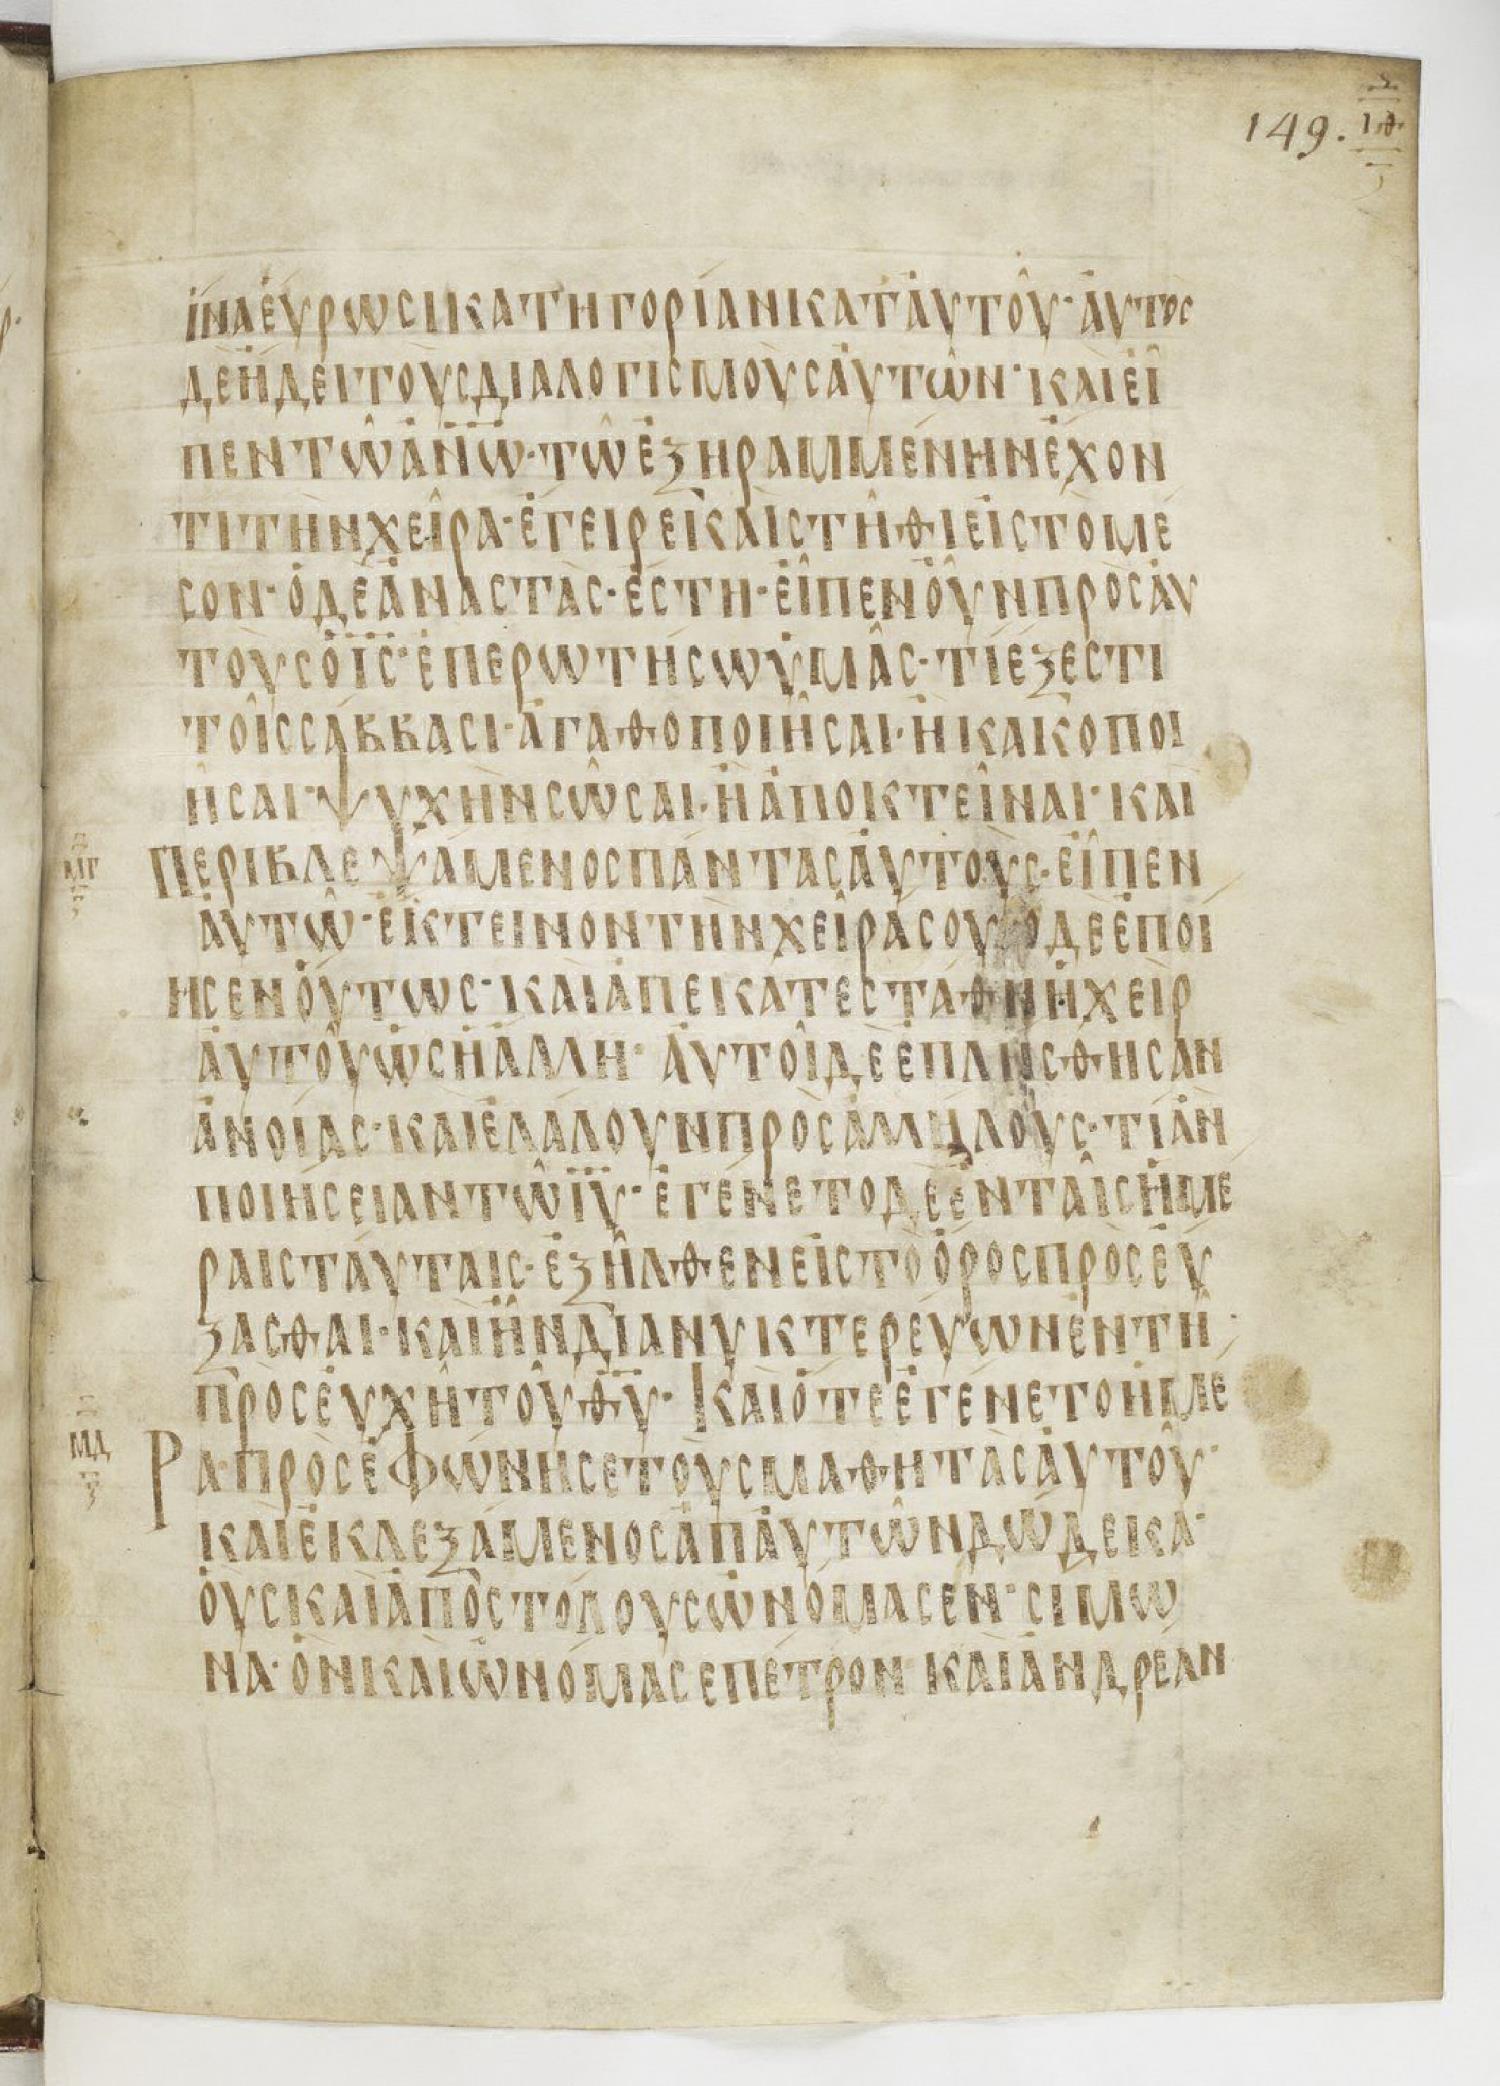 149. ΙΘ
ΙΝΑΕΥΡΩΣΙΚΑΤΗΓΟΡΙΑΝΚΑΤΑΥΤΟΥ· ΑΥΤΟΣ
ΔΕΗΔΕΙΤΟΥΣΔΙΑΛΟΓΙΣΜΟΥΣΑΥΤΩΝ· ΚΑΙΕΙ
ΠΕΝΤΩΑΝΩ· ΤΩΕΞΗΡΑΜΜΕΝΗΝΕΧΟΝ
ΤΙΤΗΝΧΕΙΡΑ· ΕΓΕΙΡΕΚΑΙΣΤΗΘΙΕΙΣΤΟΜΕ
ΣΟΝ· ΟΔΕΑΝΑΣΤΑΣ· ΕΣΤΗ· ΕΙΠΕΝΟΥΝΠΡΟΣΑΥ
ΤΟΥΣΟΙΣ· ΕΠΕΡΩΤΗΣΩΥΜΑΣ· ΤΙΕΞΕΣΤΙ
ΤΟΙΣΣΑΒΒΑΣΙ· ΑΓΑΘΟΠΟΙΗΣΑΙ· ΗΚΑΚΟΠΟΙ
ΗΣΑΙ· ΨΥΧΗΝΣΩΣΑΙ· ΗΑΠΟΚΤΕΙΝΑΙ· ΚΑΙ
ΜΓ ΠΕΡΙΒΛΕΨΑΜΕΝΟΣΠΑΝΤΑΣΑΥΤΟΥΣ· ΕΙΠΕΝ
ΑΥΤΩ· ΕΚΤΕΙΝΟΝΤΗΝΧΕΙΡΑΣΟΥ· ΟΔΕΕΠΟΙ
ΗΣΕΝΟΥΤΩΣ· ΚΑΙΑΠΕΚΑΤΕΣΤΑΘΗΗΧΕΙΡ
ΑΥΤΟΥΩΣΗΑΛΛΗ· ΑΥΤΟΙΔΕΕΠΛΗΣΘΗΣΑΝ
ΑΝΟΙΑΣ· ΚΑΙΕΛΑΛΟΥΝΠΡΟΣΑΛΛΗΛΟΥΣ· ΤΙΑΝ
ΠΟΙΗΣΕΙΑΝΤΩΙΥ· ΕΓΕΝΕΤΟΔΕΕΝΤΑΙΣΗΜΕ
ΡΑΙΣΤΑΥΤΑΙΣ· ΕΞΗΛΘΕΝΕΙΣΤΟΟΡΟΣΠΡΟΣΕΥ
ΞΑΣΘΑΙ· ΚΑΙΗΝΔΙΑΝΥΚΤΕΡΕΥΩΝΕΝΤΗ
ΠΡΟΣΕΥΧΗΤΟΥΘΥ· ΚΑΙΟΤΕΕΓΕΝΕΤΟΗΜΕ
ΜΔ ΡΑ· ΠΡΟΣΕΦΩΝΗΣΕΤΟΥΣΜΑΘΗΤΑΣΑΥΤΟΥ·
ΚΑΙΕΚΛΕΞΑΜΕΝΟΣΑΠΑΥΤΩΝΔΩΔΕΚΑ·
ΟΥΣΚΑΙΑΠΟΣΤΟΛΟΥΣΩΝΟΜΑΣΕΝ· ΣΙΜΩ
ΝΑ· ΟΝΚΑΙΩΝΟΜΑΣΕΠΕΤΡΟΝ ΚΑΙΑΝΔΡΕΑΝ